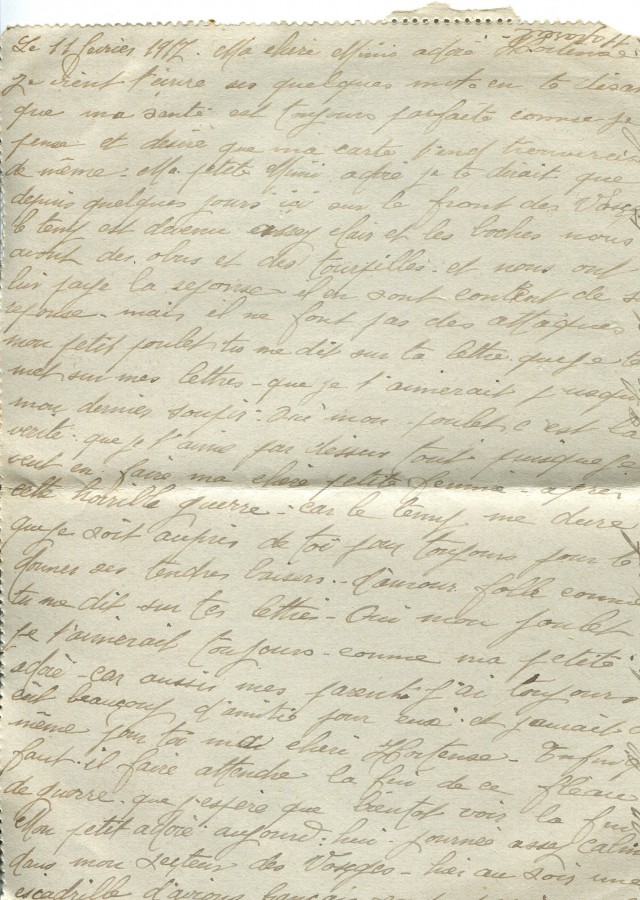 Le 11 février 1917. Ma chère Mimi adoré Hortense
Je vient t'écrire ses quelques mots en te disant
que ma santé est toujours parfaite comme je
pense et désire que ma carte t'en trouverais
de même. Ma petite Mimi adoré je te dirait que
depuis quelques jours ici sur le front des Vosges
le temp est devenu assez clair et les boches nous
avoit des obus et des tourpilles. et nous ont
lui paye la reponse - il en sont content de
reponse. mais il ne font pas des attaques
mon petit poulet tu me dit sur ta lettre que je te
met sur mes lettres - que je t'aimerait jusqu
mon dernier soupir. Oui mon poulet c'est la
verité. que je t'aime par dessus tout puisque je
veut en faire ma chère petite femme - après
cette horrible guerre. car le temp me dure
que je soit auprès de toi pour toujours pour te
donner ses tendres baisers - d'amour folle comme
tu me dit sur tes lettres - Oui mon poulet
je t'aimerait toujours - comme ma petite
adoré - car aussis mes parents j'ai toujours
eut beaucoup d'amitié pour eux. et jamait
même pour toi ma cheri Hortense - Enfin
faut. il faire attendre la fin de ce fleau
de guerre. que j'espère que bientot vois la fin
Mon petit adoré aujourd'hui journée assez calme
dans mon secteur des Vosges - hier au soir une
escadrille d'avions français